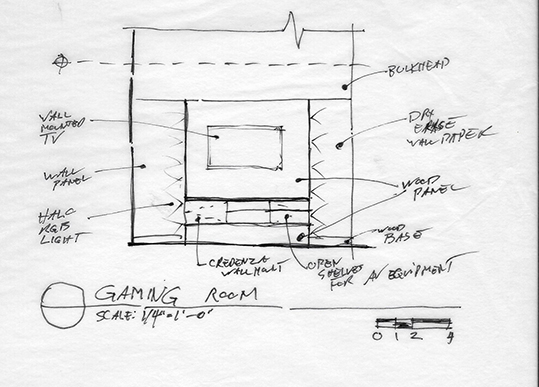 BULKHEAD
WALL
MOUNTED
TV
DRY
ERASE
WALL PAPER
WALL
PANEL
WOOD
PANEL
HALO
RGB
LIGHT
WOOD
BASE
CREDENZA
WALL MOUNT
OPEN
SHELVES
FOR AV EQUIPMENT
GAMING ROOM
SCALE: 1/4"=1'-0"
0 1 2 4